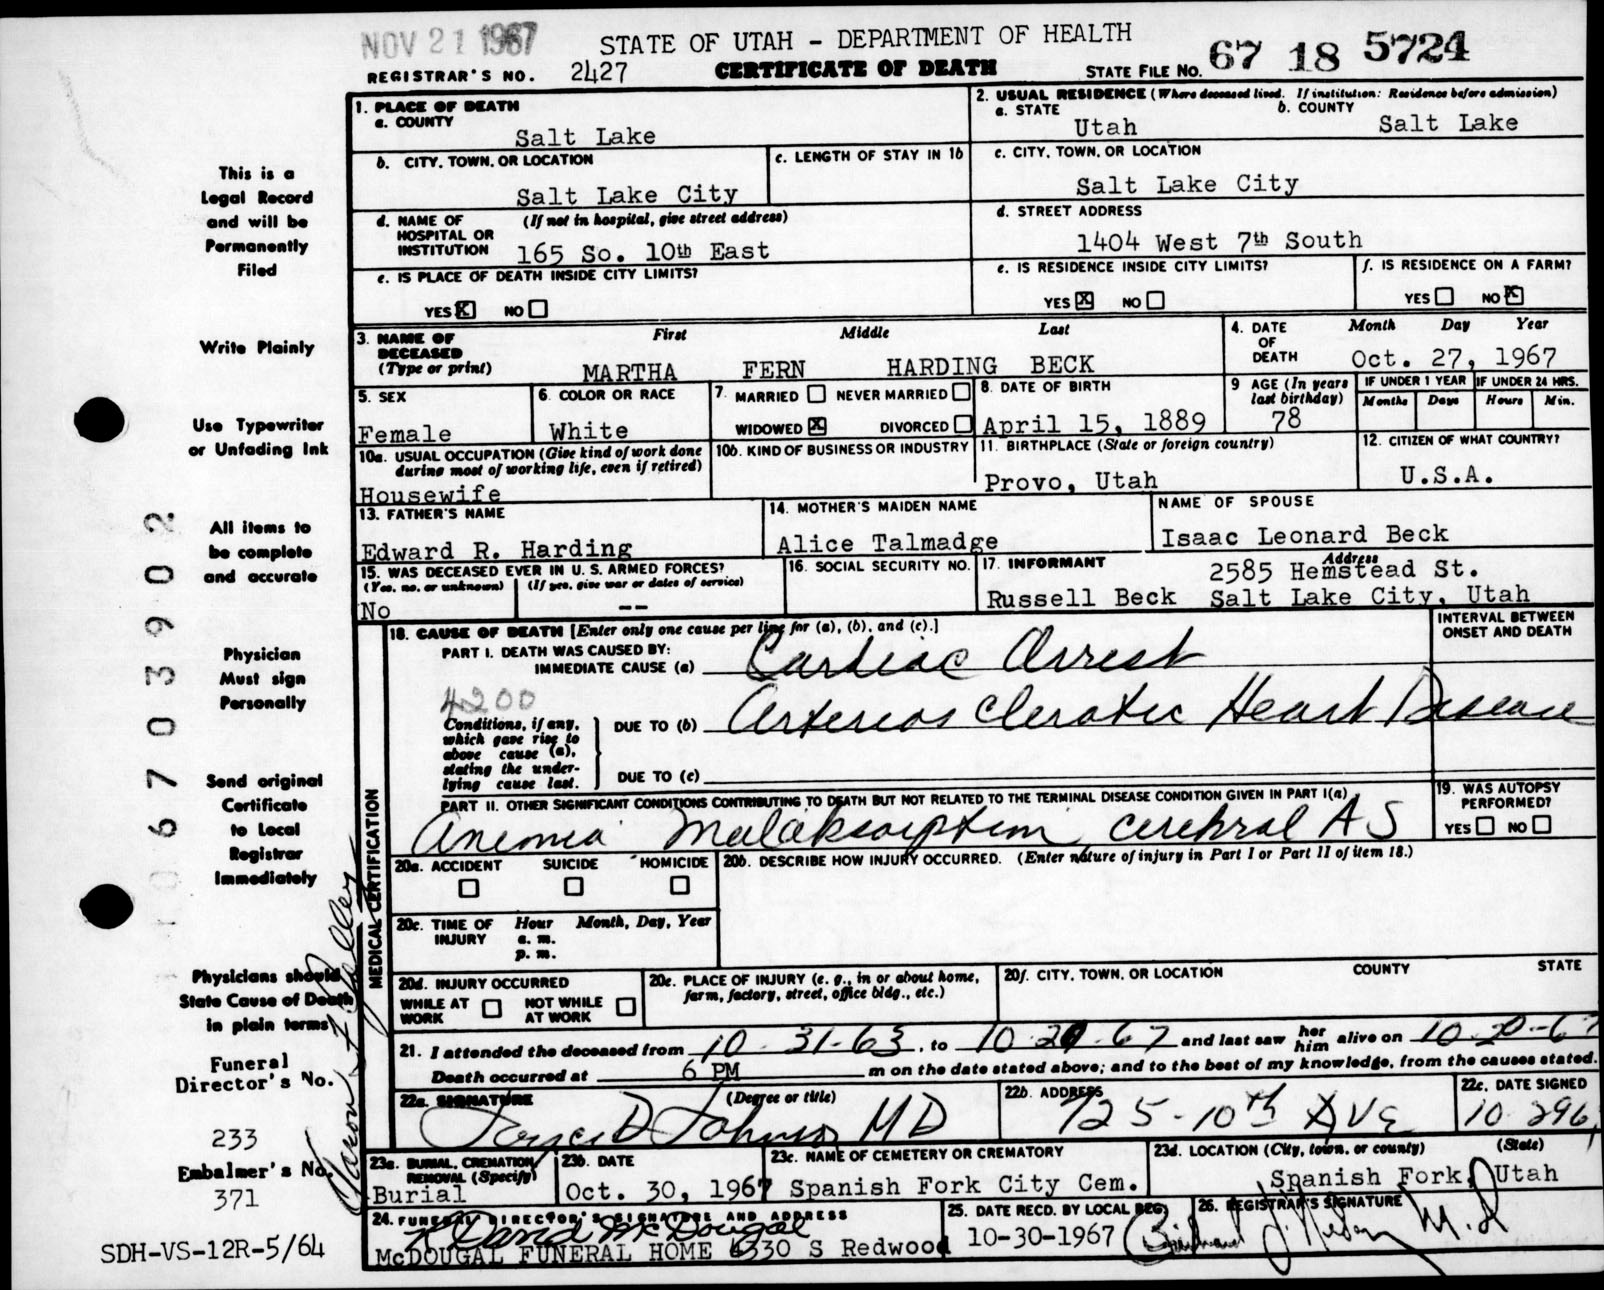 NOV 21 1967
STATE OF UTAH - DEPARTMENT OF HEALTH
REGISTRAR'S NO. 2427
CERTIFICATE OF DEATH
STATE FILE NO. 67 18 5724
1. PLACE OF DEATH
a. COUNTY
Salt Lake
2. USUAL RESIDENCE (Where deceased lived. If institution: Residence before admission)
a. STATE
Utah
b. COUNTY
Salt Lake
b. CITY, TOWN, OR LOCATION
Salt Lake City
c. LENGTH OF STAY IN 1b
c. CITY, TOWN, OR LOCATION
Salt Lake City
d. NAME OF HOSPITAL OR INSTITUTION
(If not in hospital, give street address)
165 So. 10th East
d. STREET ADDRESS
1404 West 7th South
e. IS PLACE OF DEATH INSIDE CITY LIMITS?
YES X NO
e. IS RESIDENCE INSIDE CITY LIMITS?
YES X NO
f. IS RESIDENCE ON A FARM?
YES NO X
3. NAME OF DECEASED
(Type or print)
First Middle Last
MARTHA FERN HARDING BECK
4. DATE OF DEATH
Month Day Year
Oct. 27, 1967
5. SEX
Female
6. COLOR OR RACE
White
7. MARRIED NEVER MARRIED
WIDOWED X DIVORCED
8. DATE OF BIRTH
April 15, 1889
9 AGE (In years last birthday)
78
IF UNDER 1 YEAR
Months Days
IF UNDER 24 HRS.
Hours Min.
10a. USUAL OCCUPATION (Give kind of work done during most of working life, even if retired)
Housewife
10b. KIND OF BUSINESS OR INDUSTRY
11. BIRTHPLACE (State or foreign country)
Provo, Utah
12. CITIZEN OF WHAT COUNTRY?
U.S.A.
13. FATHER'S NAME
Edward R. Harding
14. MOTHER'S MAIDEN NAME
Alice Talmadge
NAME OF SPOUSE
Isaac Leonard Beck
15. WAS DECEASED EVER IN U. S. ARMED FORCES?
(Yes, no, or unknown) (If yes, give war or dates of service)
No --
16. SOCIAL SECURITY NO.
17. INFORMANT Address
2585 Hemstead St.
Russell Beck Salt Lake City, Utah
MEDICAL CERTIFICATION
18. CAUSE OF DEATH [Enter only one cause per line for (a), (b), and (c).]
INTERVAL BETWEEN ONSET AND DEATH
PART I. DEATH WAS CAUSED BY:
IMMEDIATE CAUSE (a) Cardiac Arrest
4200
Conditions, if any, which gave rise to above cause (a), stating the underlying cause last.
DUE TO (b) Arteriosclerotic Heart Disease
DUE TO (c)
PART II. OTHER SIGNIFICANT CONDITIONS CONTRIBUTING TO DEATH BUT NOT RELATED TO THE TERMINAL DISEASE CONDITION GIVEN IN PART I(a)
Anemia Malabsorption cerebral AS
19. WAS AUTOPSY PERFORMED?
YES NO
20a. ACCIDENT SUICIDE HOMICIDE
20b. DESCRIBE HOW INJURY OCCURRED. (Enter nature of injury in Part I or Part II of item 18.)
20c. TIME OF INJURY
Hour Month, Day, Year
a. m.
p. m.
20d. INJURY OCCURRED
WHILE AT WORK NOT WHILE AT WORK
20e. PLACE OF INJURY (e. g., in or about home, farm, factory, street, office bldg., etc.)
20f. CITY, TOWN, OR LOCATION COUNTY STATE
21. I attended the deceased from 10-31-63, to 10-20-67 and last saw her him alive on 10-20-67
Death occurred at 6 PM m on the date stated above; and to the best of my knowledge, from the causes stated.
22a. SIGNATURE (Degree or title)
Johnson MD
22b. ADDRESS
725-10th Ave
22c. DATE SIGNED
10 296
23a. BURIAL, CREMATION, REMOVAL (Specify)
Burial
23b. DATE
Oct. 30, 1967
23c. NAME OF CEMETERY OR CREMATORY
Spanish Fork City Cem.
23d. LOCATION (City, town, or county) (State)
Spanish Fork, Utah
24. FUNERAL DIRECTOR'S SIGNATURE AND ADDRESS
David McDougal
McDOUGAL FUNERAL HOME 4330 S Redwood
25. DATE RECD. BY LOCAL REG.
10-30-1967
26. REGISTRAR'S SIGNATURE
M.D
This is a
Legal Record
and will be
Permanently
Filed
Write Plainly
Use Typewriter
or Unfading Ink
All items to
be complete
and accurate
Physician
Must sign
Personally
Send original
Certificate
to Local
Registrar
Immediately
Physicians should
State Cause of Death
in plain terms
Funeral
Director's No.
233
Embalmer's No.
371
SDH-VS-12R-5/64
06703902